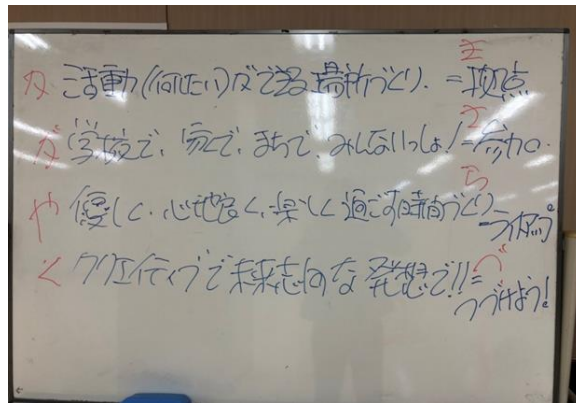 か 活動(何したい)ができる場所づくり. = 拠点
が 学校で、家で、まちで、みんないっしょ! = 参加。
や 優しく、心地良く、楽しく過ごす時間づくり
く クリエイティブで未来志向な発想で!! =
つづけよう!